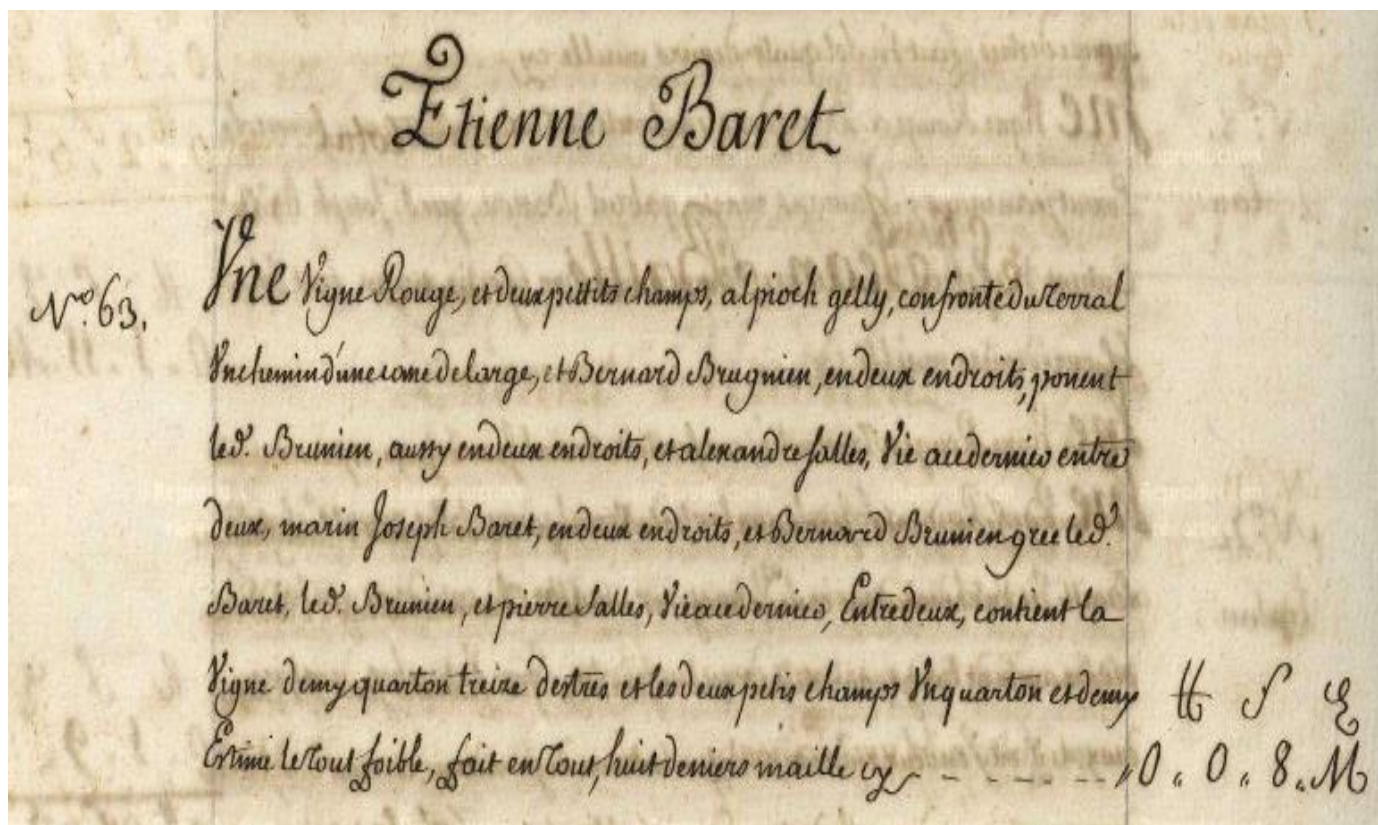 Etienne Baret
N.º 63.
Vne Vigne Rouge, et deux pettits champs, al pioch gelly, confronte du terral
Vn chemin d'une cane de large, et Bernard Brugnien, en deux endroits, ponent
led. Brunien, aussy en deux endroits, et alexandre salles, Vie acedernico entre
deux, marin Joseph Baret, en deux endroits, et Bernard Brunien grec led.
Baret, led. Brunien, et pierre salles, Vie acedernico, Entre deux, contient la
Vigne demy quarton treize destres et les deux petis champs Vn quarton et demy
Estimé le tout foible, fait en tout, huit deniers maille cy
₶ s d
0 „ 0 „ 8 „ M